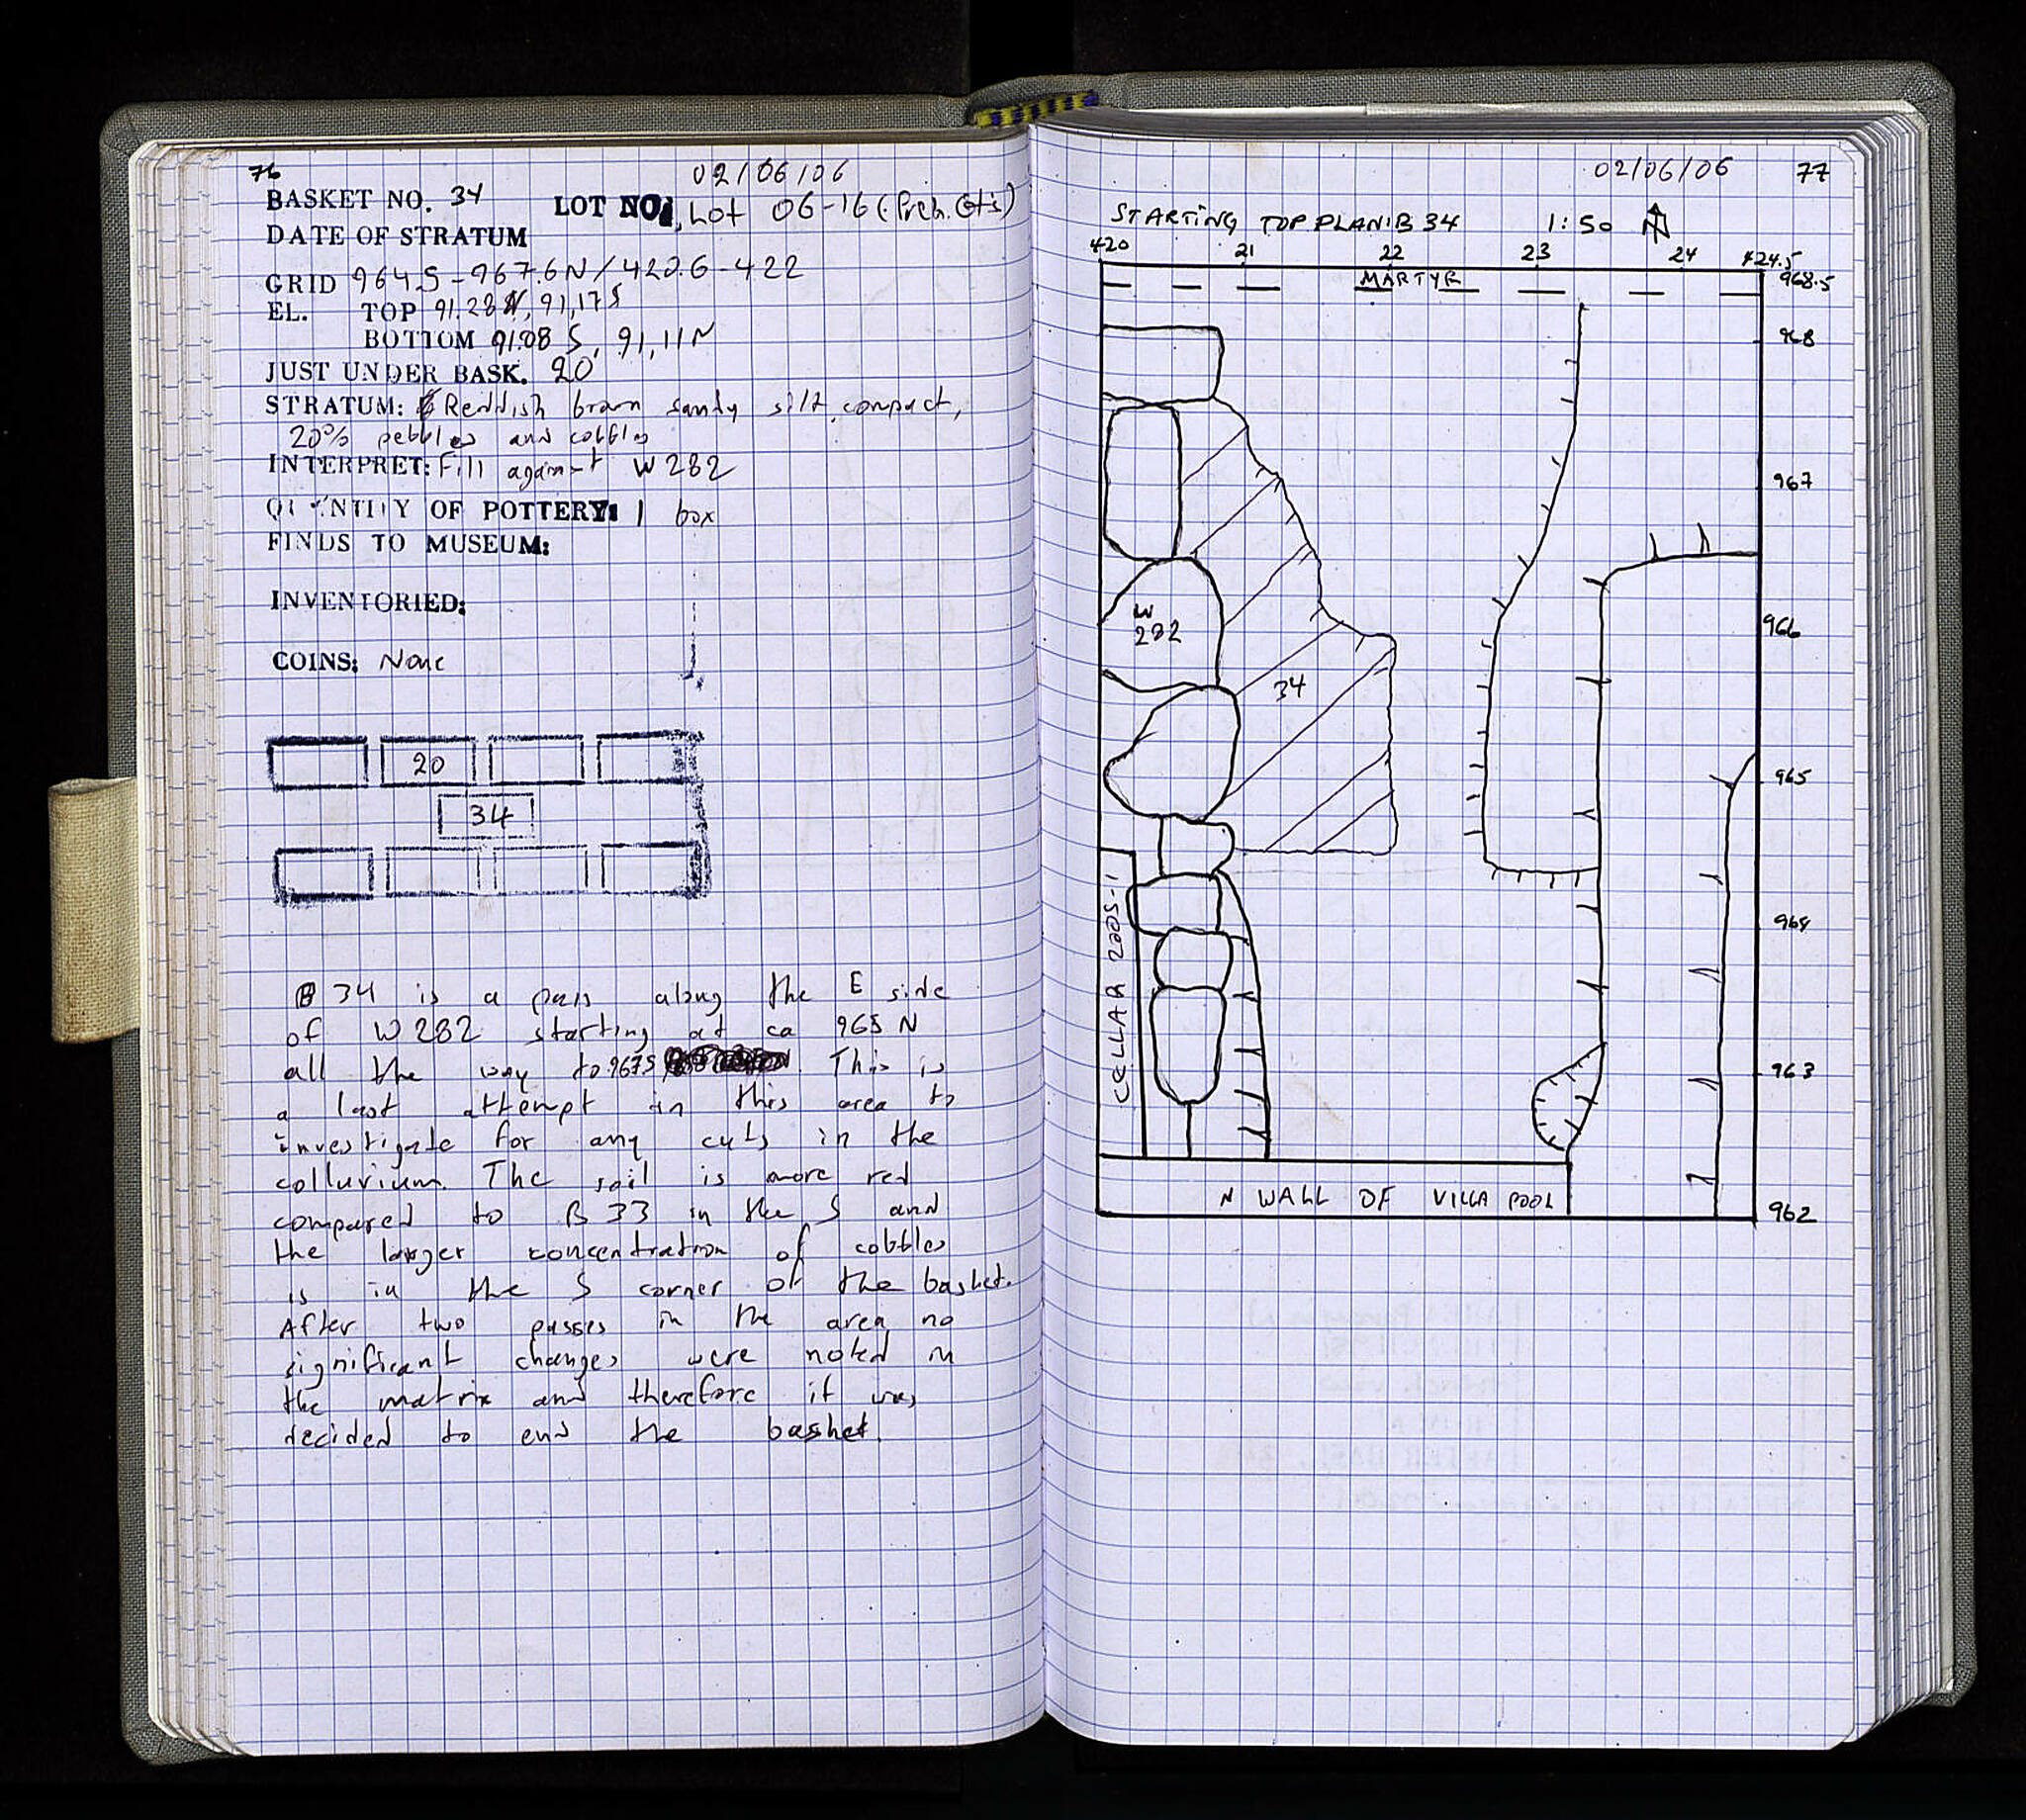 76
02/06/06
BASKET NO. 34 LOT NO. Lot 06-16 (Preh. Gts)
DATE OF STRATUM
GRID 964.5-967.6N/420.6-422
EL. TOP 91.28 N, 91,17 S
BOTTOM 91.08 S, 91,11 N
JUST UNDER BASK. 20
STRATUM: Reddish brown sandy silt, compact,
20% pebbles and cobbles
INTERPRET: Fill against W 282
QUANTITY OF POTTERY: 1 box
FINDS TO MUSEUM:
INVENTORIED:
COINS: None
20
34
B 34 is a pass along the E side
of W 282 starting at ca 965 N
all the way to 967.5 This is
a last attempt in this area to
investigate for any cuts in the
colluvium. The soil is more red
compared to B 33 in the S and
the larger concentration of cobbles
is in the S corner of the basket.
After two passes in the area no
significant changes were noted in
the matrix and therefore it was
decided to end the basket.
02/06/06 77
STARTING TOP PLAN: B 34 1:50 N
420 21 22 23 24 424.5
MARTYR
968.5
968
967
W
282
966
34
965
964
CELLAR 2005-1
963
N WALL OF VILLA POOL
962